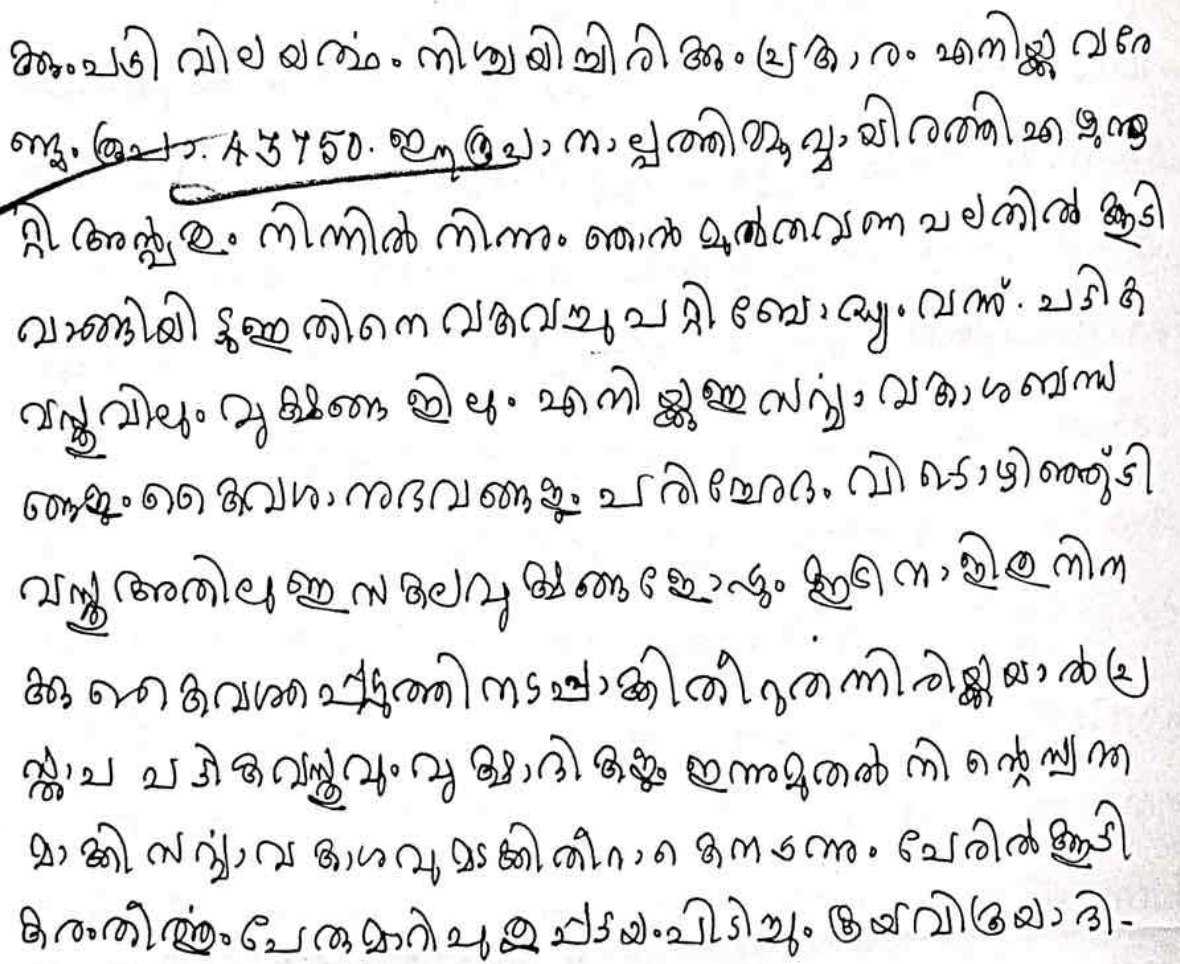 ക്കുംപടി വില യർത്ഥം നിശ്ചയിച്ചിരിക്കും പ്രകാരം എനിയ്ക്കു വരേ
ണ്ടും രൂപാ. 43750. ഈ രൂപാ നാല്പത്തിമൂവ്വായിരത്തി എഴുന്നൂ
റ്റി അൻപതും നിന്നിൽ നിന്നും ഞാൻ മുൽതവണ പലതിൽ കൂടി
വാങ്ങിയിട്ടുള്ളതിനെ വകവച്ചു പറ്റി ബോദ്ധ്യം വന്ന്. പട്ടിക
വസ്തുവിലും വൃക്ഷങ്ങളിലും എനിയ്ക്കുള്ള സർവ്വാവകാശബന്ധ
ങ്ങളും കൈവശാനുഭവങ്ങളും പരിച്ഛേദം വിട്ടൊഴിഞ്ഞ് ടി
വസ്തു അതിലുള്ള സകലവൃക്ഷങ്ങളോടും കൂടി നാളിതു നിന
ക്കു കൈവശപ്പെടുത്തി നടപ്പാക്കി തീറുതന്നിരിയ്ക്കയാൽ പ്ര
സ്താവ പട്ടികവസ്തുവും വൃക്ഷാദികളും ഇന്നുമുതൽ നിന്റെ സ്വന്ത
മാക്കി സർവ്വാവകാശവുമടക്കി തീറാ കനടന്നും പേരിൽകൂടി
കരംതീർത്തും പേരുമാറി പുതുപ്പട്ടയംപിടിച്ചും ക്രയവിക്രയാദി-